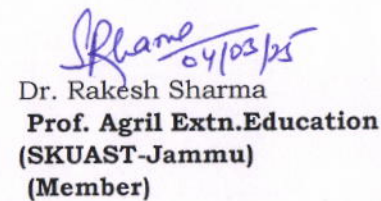 SRhame
04/03/25
Dr. Rakesh Sharma
Prof. Agril Extn.Education
(SKUAST-Jammu)
(Member)